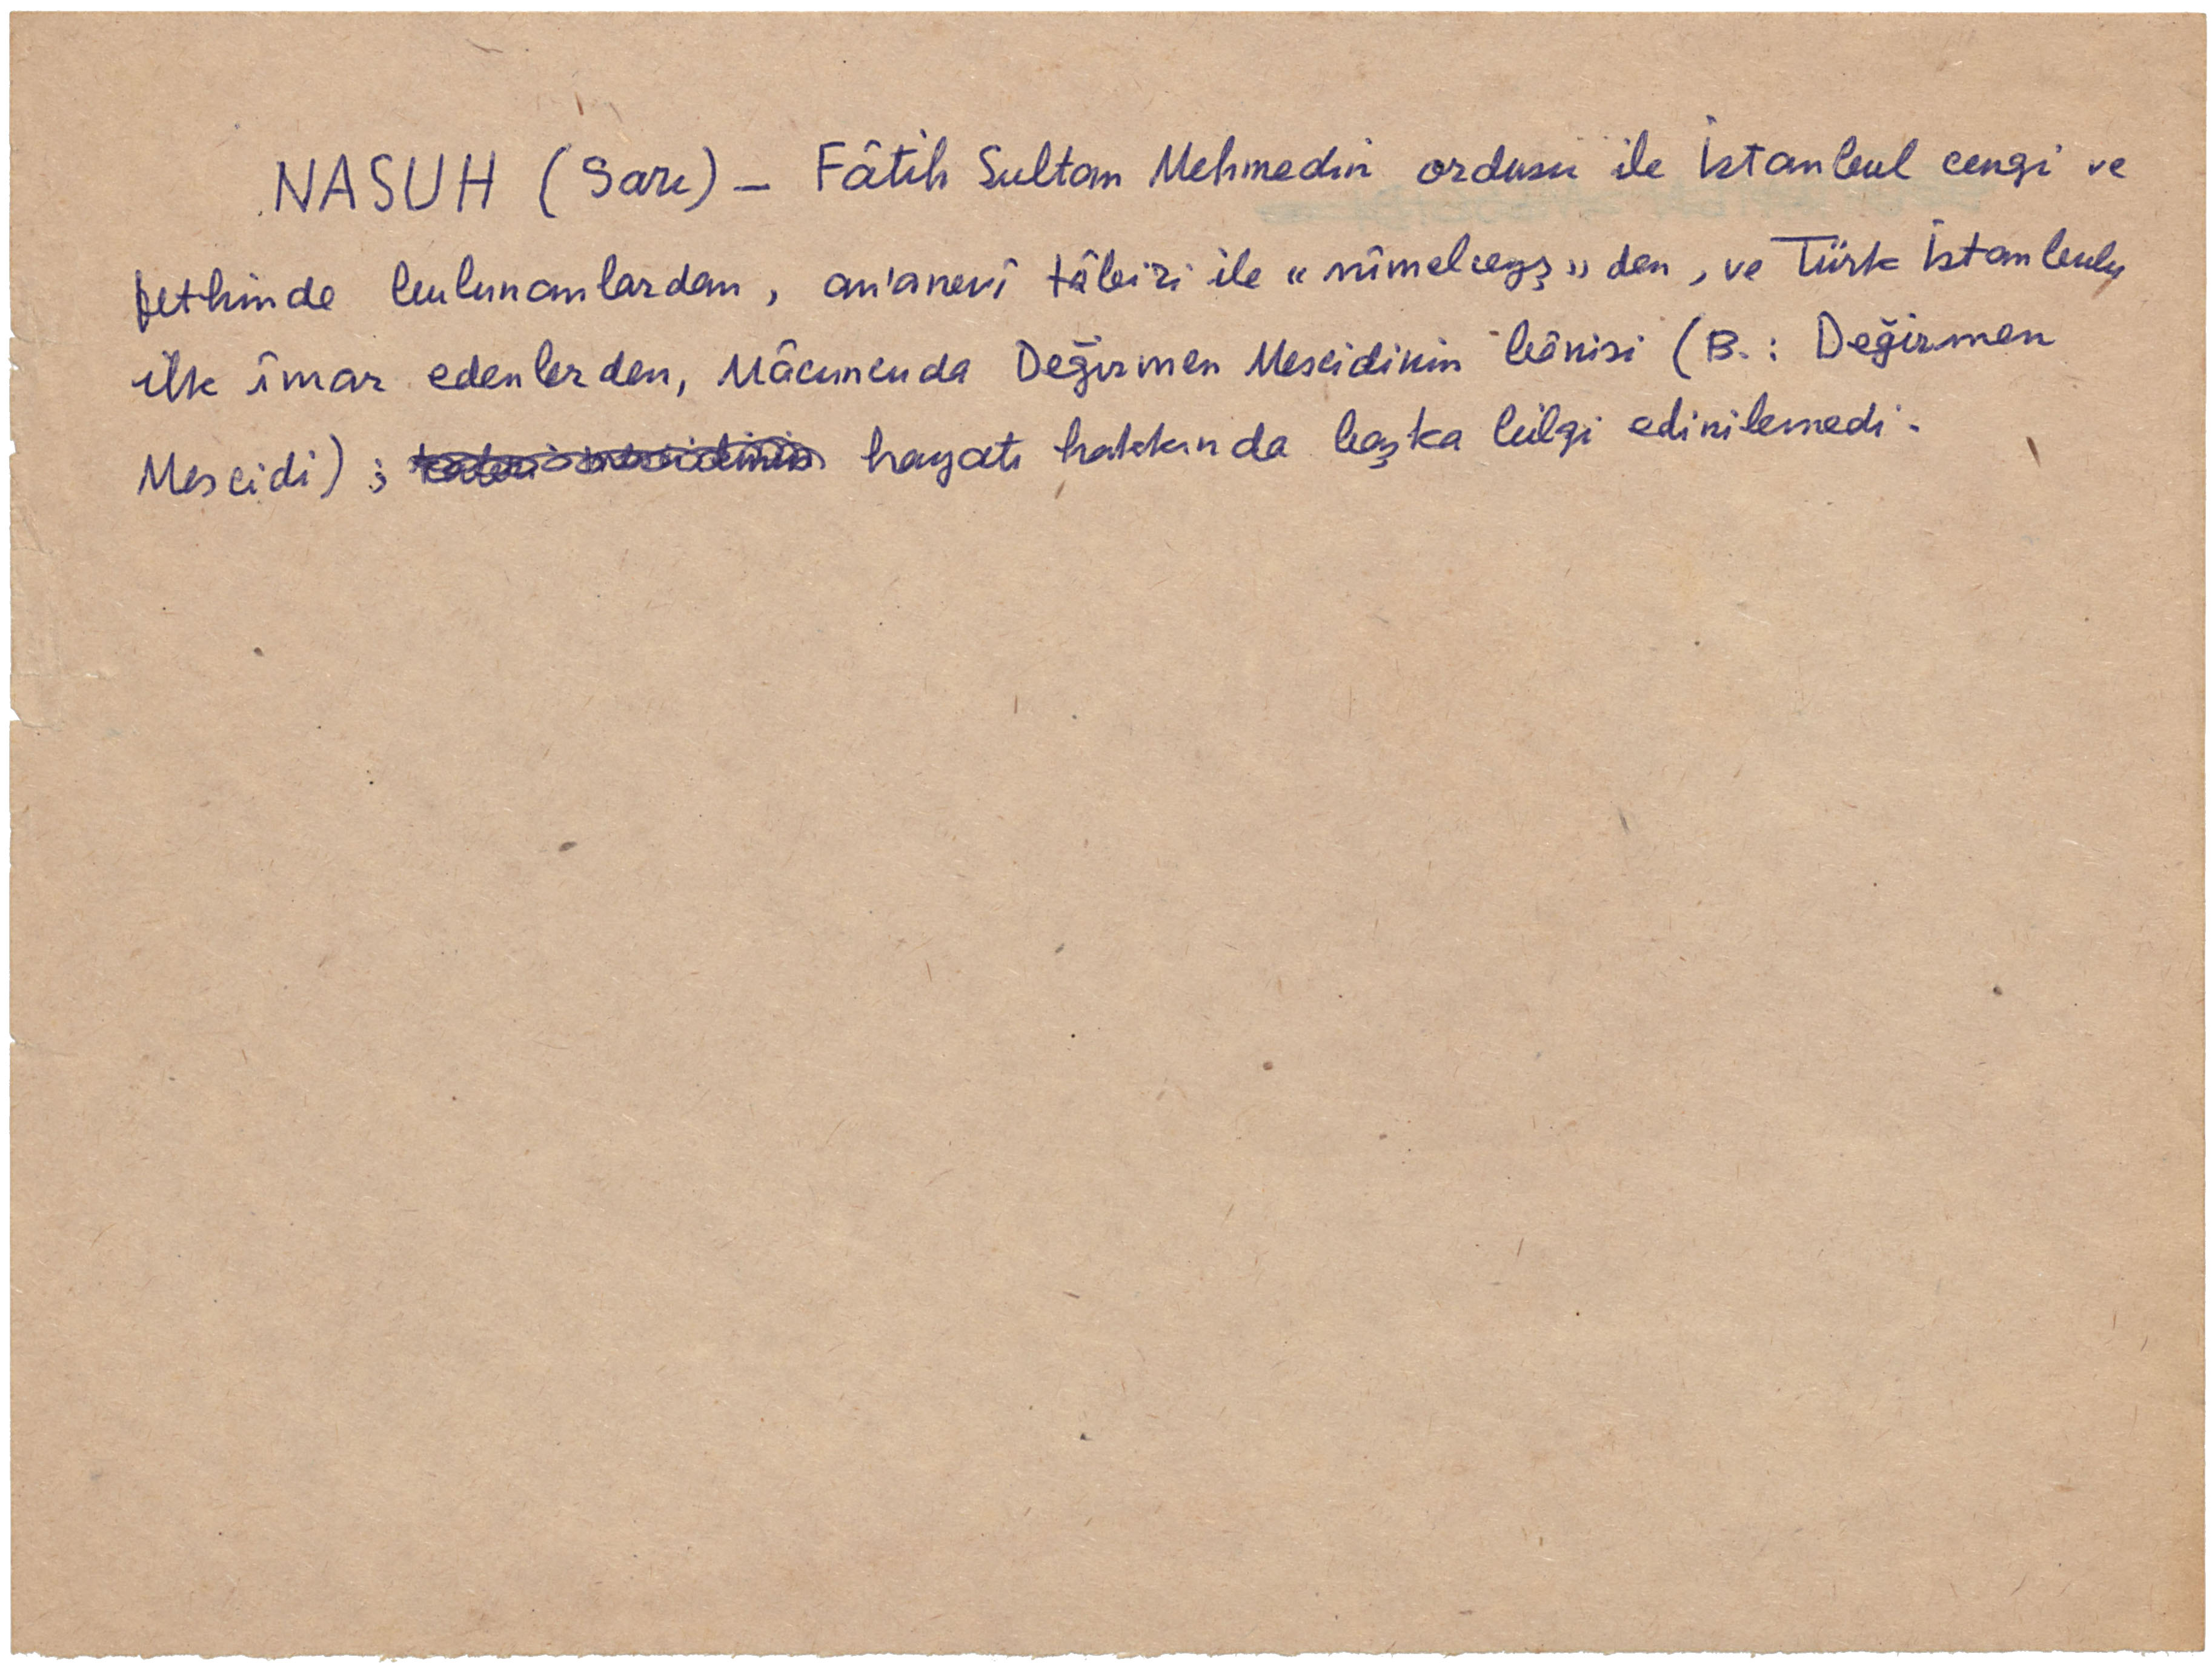 NASUH (Sarı) — Fâtih Sultan Mehmedin ordusu ile İstanbul cengi ve
fethinde bulunanlardan, an'anevî tâbiri ile « nîmelceyş » den, ve Türk İstanbulu
ilk îmar edenlerden, Mâcuncuda Değirmen Mescidinin bânisi (B. : Değirmen
Mescidi) ; hayatı hakkında başka bilgi edinilemedi.